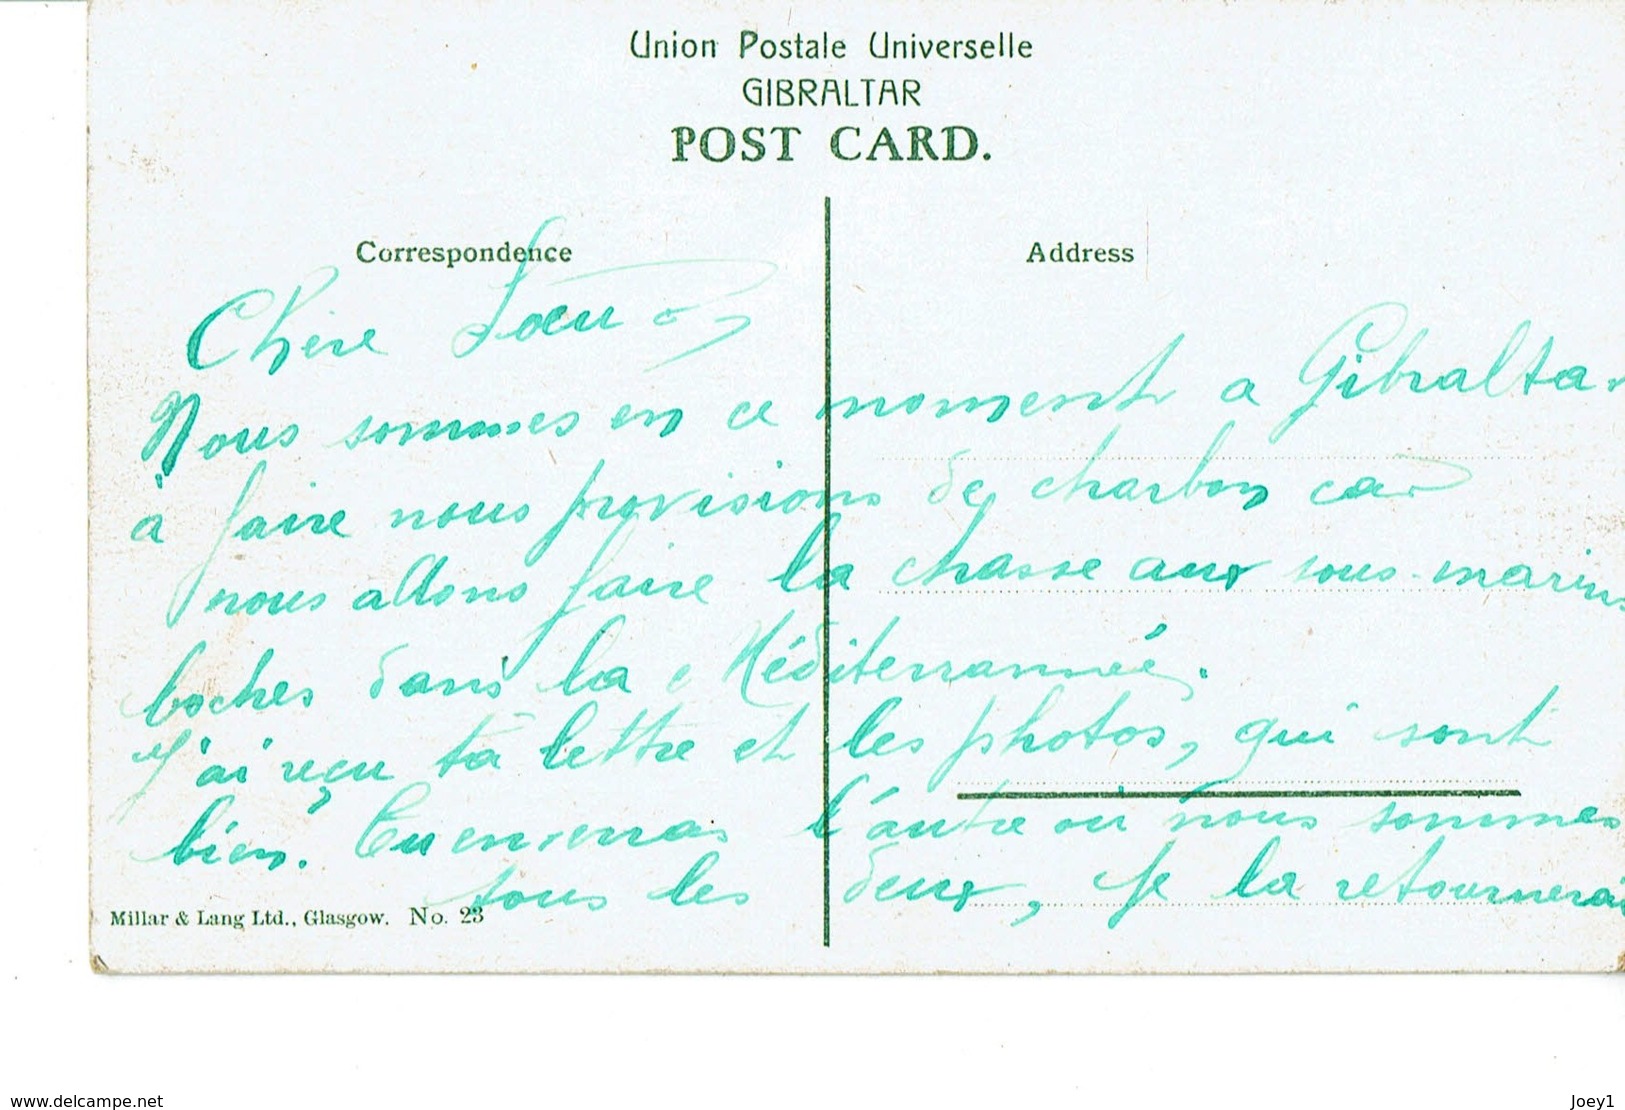 Union Postale Universelle
GIBRALTAR
POST CARD.
Correspondence
Address
Chère Sœur
Nous sommes en ce moment a Gibraltar
à faire nous provisions de charbon car
nous allons faire la chasse aux sous-marins
boches dans la Méditerrannée.
J'ai reçu ta lettre et les photos, qui sont
bien. Tu enverras l'autre ou nous sommes
tous les deux, je la retournerai
Millar & Lang Ltd., Glasgow. No. 23
www.delcampe.net
Joey1